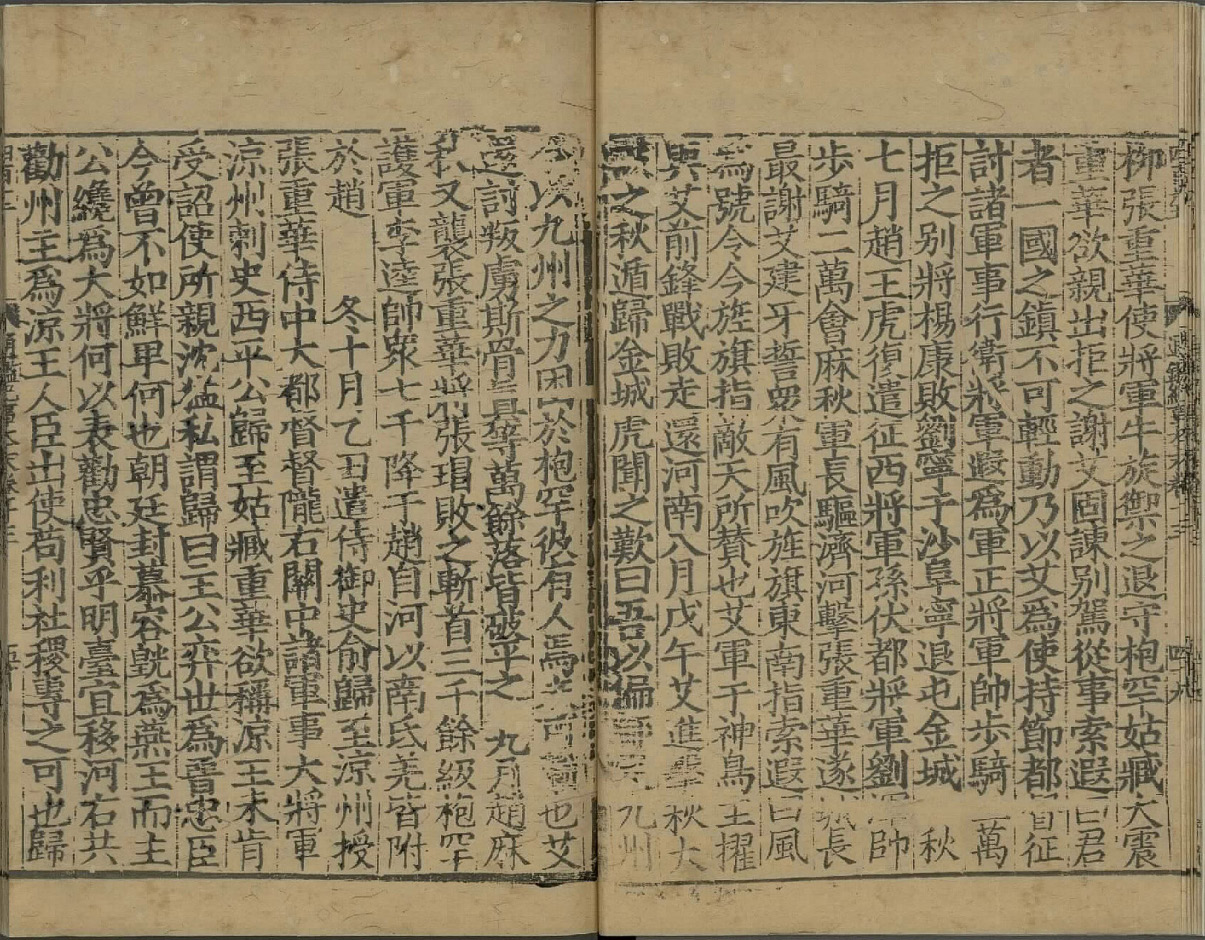 栁張重華使將軍牛旋禦之退守枹罕姑臧大震
重華欲親出拒之謝艾固諫别駕從事索遐曰君
者一國之鎮不可輕動乃以艾爲使持節都督征
討諸軍事行衛將軍遐爲軍正將軍帥歩騎二萬
拒之别將楊康敗劉寧于沙阜寧退屯金城 秋
七月趙王虎復遣征西將軍孫伏都將軍劉渾帥
歩騎二萬會麻秋軍長驅濟河擊張重華遂城長
最謝艾建牙誓衆有風吹旌旗東南指索遐曰風
爲號令今旌旗指敵天所賛也艾軍于神鳥王擢
與艾前鋒戰敗走還河南八月戊午艾進擊秋大
之秋遁歸金城虎聞之歎曰吾以偏師定九州
今以九州之力困於枹罕彼有人焉未可圖也艾
還討叛虜斯骨真等萬餘落皆破平之 九月趙麻
秋又襲張重華將張瑁敗之斬首三千餘級枹罕
護軍李逵帥衆七千降于趙自河以南氐羌皆附
於趙 冬十月乙丑遣侍御史俞歸至涼州授
張重華侍中大都督督隴右關中諸軍事大將軍
涼州刺史西平公歸至姑臧重華欲稱凉王未肯
受詔使所親沈猛私謂歸曰主公弈世爲晉忠臣
今曾不如鮮卑何也朝廷封慕容皝爲燕王而主
公纔爲大將何以表勸忠賢乎明臺宜移河右共
勸州主爲凉王人臣出使苟利社稷專之可也歸